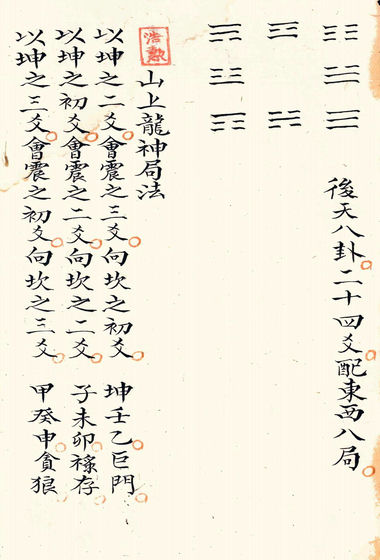 後天八卦二十四爻配東西八局
浩勲
山上龍神局法
以坤之二爻會震之三爻向坎之初爻 坤壬乙巨門
以坤之初爻會震之二爻向坎之二爻 子未卯祿存
以坤之三爻會震之初爻向坎之三爻 甲癸申貪狼